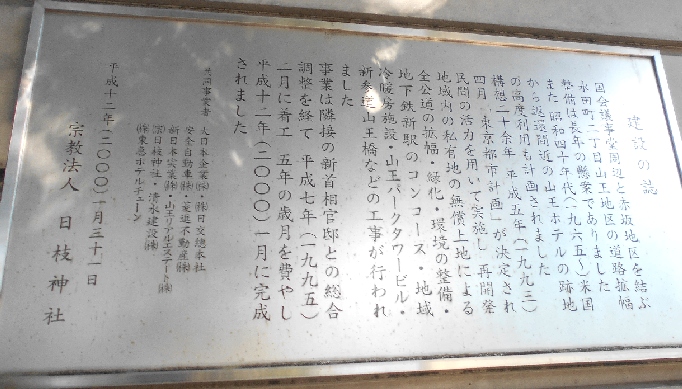 建設の誌
国会議事堂周辺と赤坂地区を結ぶ
永田町二丁目山王地区の道路拡幅
整備は長年の懸案でありました
また 昭和四十年代(一九六五~)米国
から返還間近の山王ホテルの跡地
の高度利用も計画されました
構想二十余年 平成五年(一九九三)
四月「東京都市計画」が決定され
民間の活力を用いて実施し 再開発
地域内の私有地の無償上地による
全公道の拡幅・緑化・環境の整備・
地下鉄新駅のコンコース・地域
冷暖房施設・山王パークタワービル・
新参道山王橋などの工事が行われ
ました
事業は隣接の新首相官邸との総合
調整を経て 平成七年(一九九五)
二月に着工 五年の歳月を費やし
平成十二年(二〇〇〇)一月に完成
されました
共同事業者 大日本企業㈱・㈱日交総本社
安全自動車㈱・三菱地所㈱
新日本実業㈱・山王リアルエステート㈱
㈶日枝神社・清水建設㈱
㈱東急ホテルチェーン
平成十二年(二〇〇〇)一月三十一日
宗教法人 日枝神社